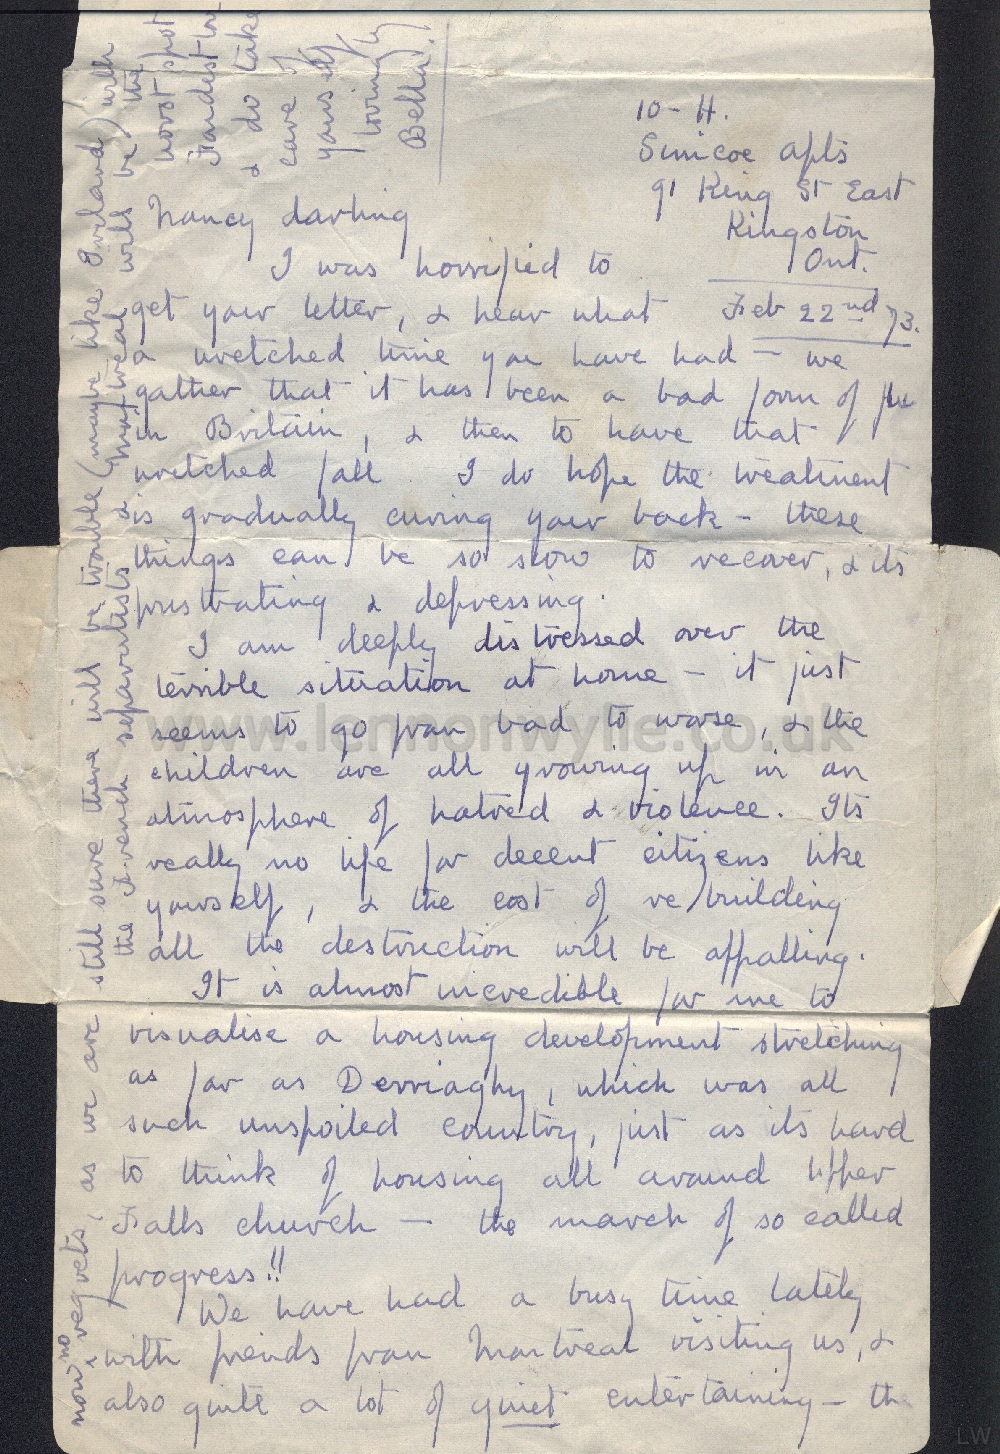 10 - H.
Simcoe Apts
91 King St East
Kingston
Ont.
Feb 22nd 73.
Nancy darling
I was horrified to
get your letter, & hear what
a wretched time you have had – we
gather that it has been a bad form of flu
in Britain, & then to have that
wretched fall. I do hope the treatment
is gradually curing your back – these
things can be so slow to recover, & its
frustrating & depressing.
I am deeply distressed over the
terrible situation at home – it just
seems to go from bad to worse, & the
children are all growing up in an
atmosphere of hatred & violence. Its
really no life for decent citizens like
yourself, & the cost of re/building
all the destruction will be appalling.
It is almost incredible for me to
visualise a housing development stretching
as far as Derriaghy, which was all
such unspoiled country, just as its hard
to think of housing all around Upper
Falls church – the march of so called
progress!!
We have had a busy time lately
with friends from Montreal visiting us, &
also quite a lot of quiet entertaining – the
now no regrets, as we are still sure there will be trouble (maybe like Ireland) with
the French separatists & Montreal will be the
worst spot
Fondest love
& do take
care of
yourself
lovingly
Bella.
www.lennonwylie.co.uk
LW